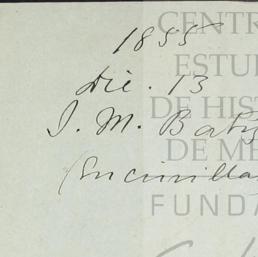 1855
Dic. 13
J. M. Batiz
(Encinilla
CENTR
ESTU
DE HIST
DE MÉ
FUNDA